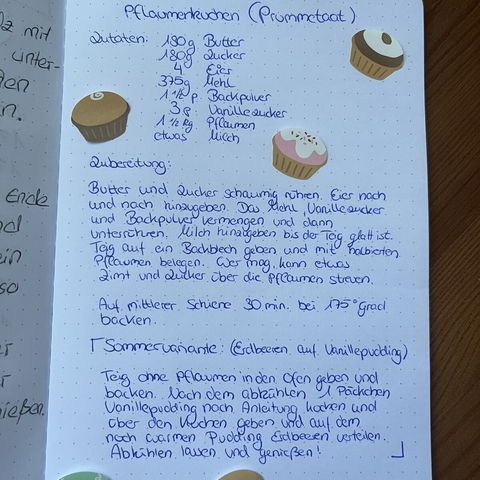 z mit
unter-
en
n.
Ende
d
ein
so
er
r
ießen.
Pflaumenkuchen (Prummetaat)
Zutaten: 180g Butter
180g Zucker
4 Eier
375g Mehl
1 1/2 P. Backpulver
3 P. Vanillezucker
1 1/2 kg Pflaumen
etwas Milch
Zubereitung:
Butter und Zucker schaumig rühren. Eier nach
und nach hinzugeben. Das Mehl, Vanillezucker
und Backpulver vermengen und dann
unterrühren. Milch hinzugeben bis der Teig glatt ist.
Teig auf ein Backblech geben und mit halbierten
Pflaumen belegen. Wer mag, kann etwas
Zimt und Zucker über die Pflaumen streuen.
Auf mittlerer Schiene 30 min. bei 175° Grad
backen.
Sommervariante: (Erdbeeren auf Vanillepudding)
Teig ohne Pflaumen in den Ofen geben und
backen. Nach dem abkühlen 1 Päckchen
Vanillepudding nach Anleitung kochen und
über den Kuchen geben und auf dem
noch warmen Pudding Erdbeeren verteilen.
Abkühlen lassen und genießen!